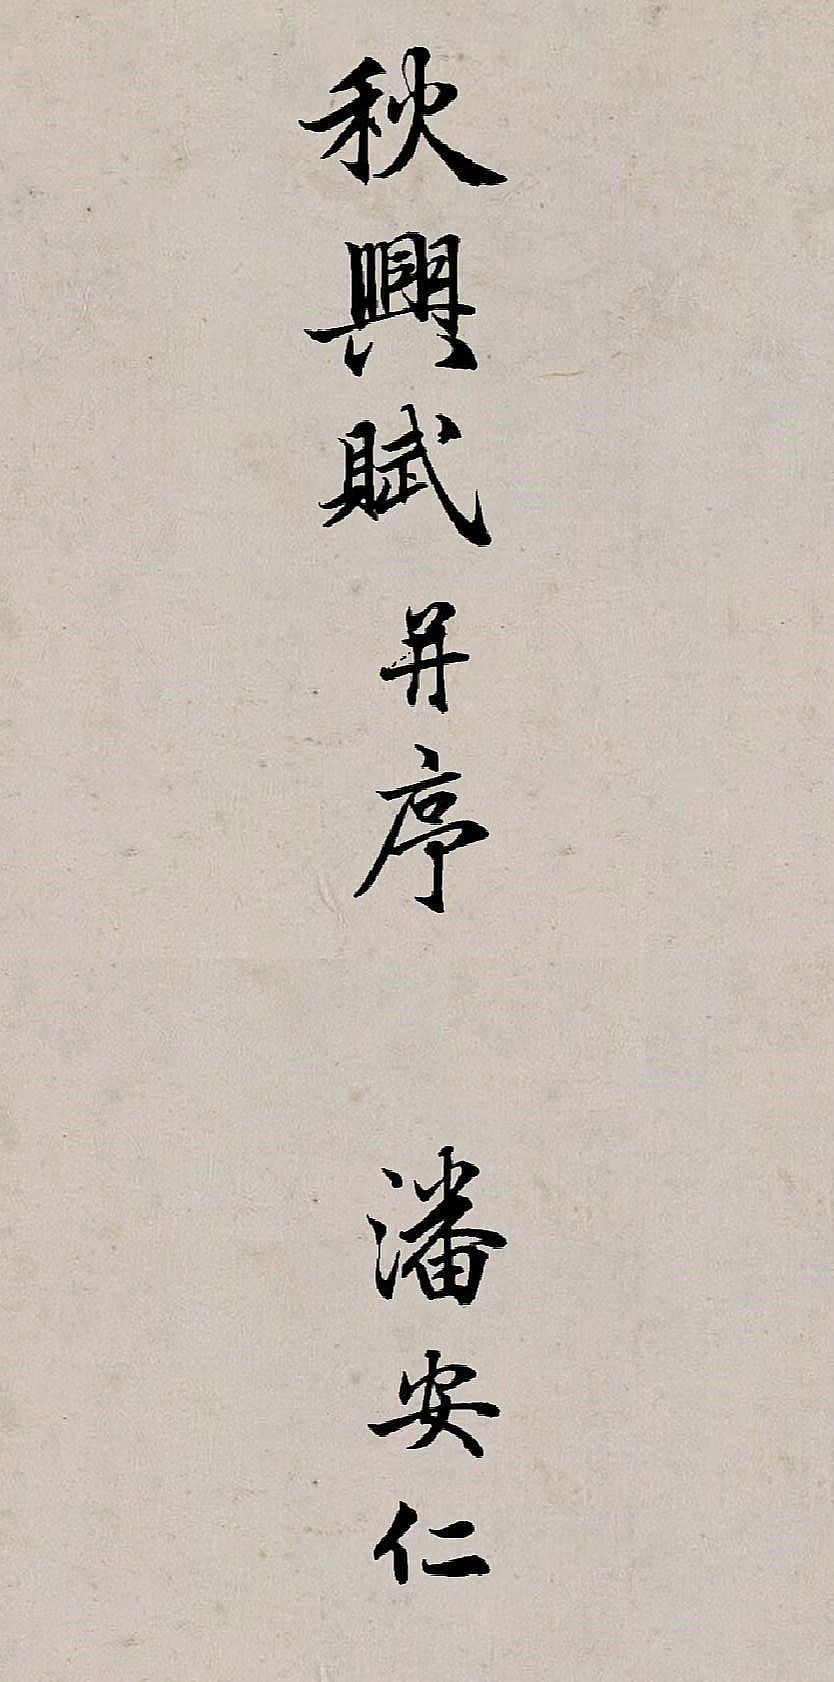 秋興賦并序 潘安仁